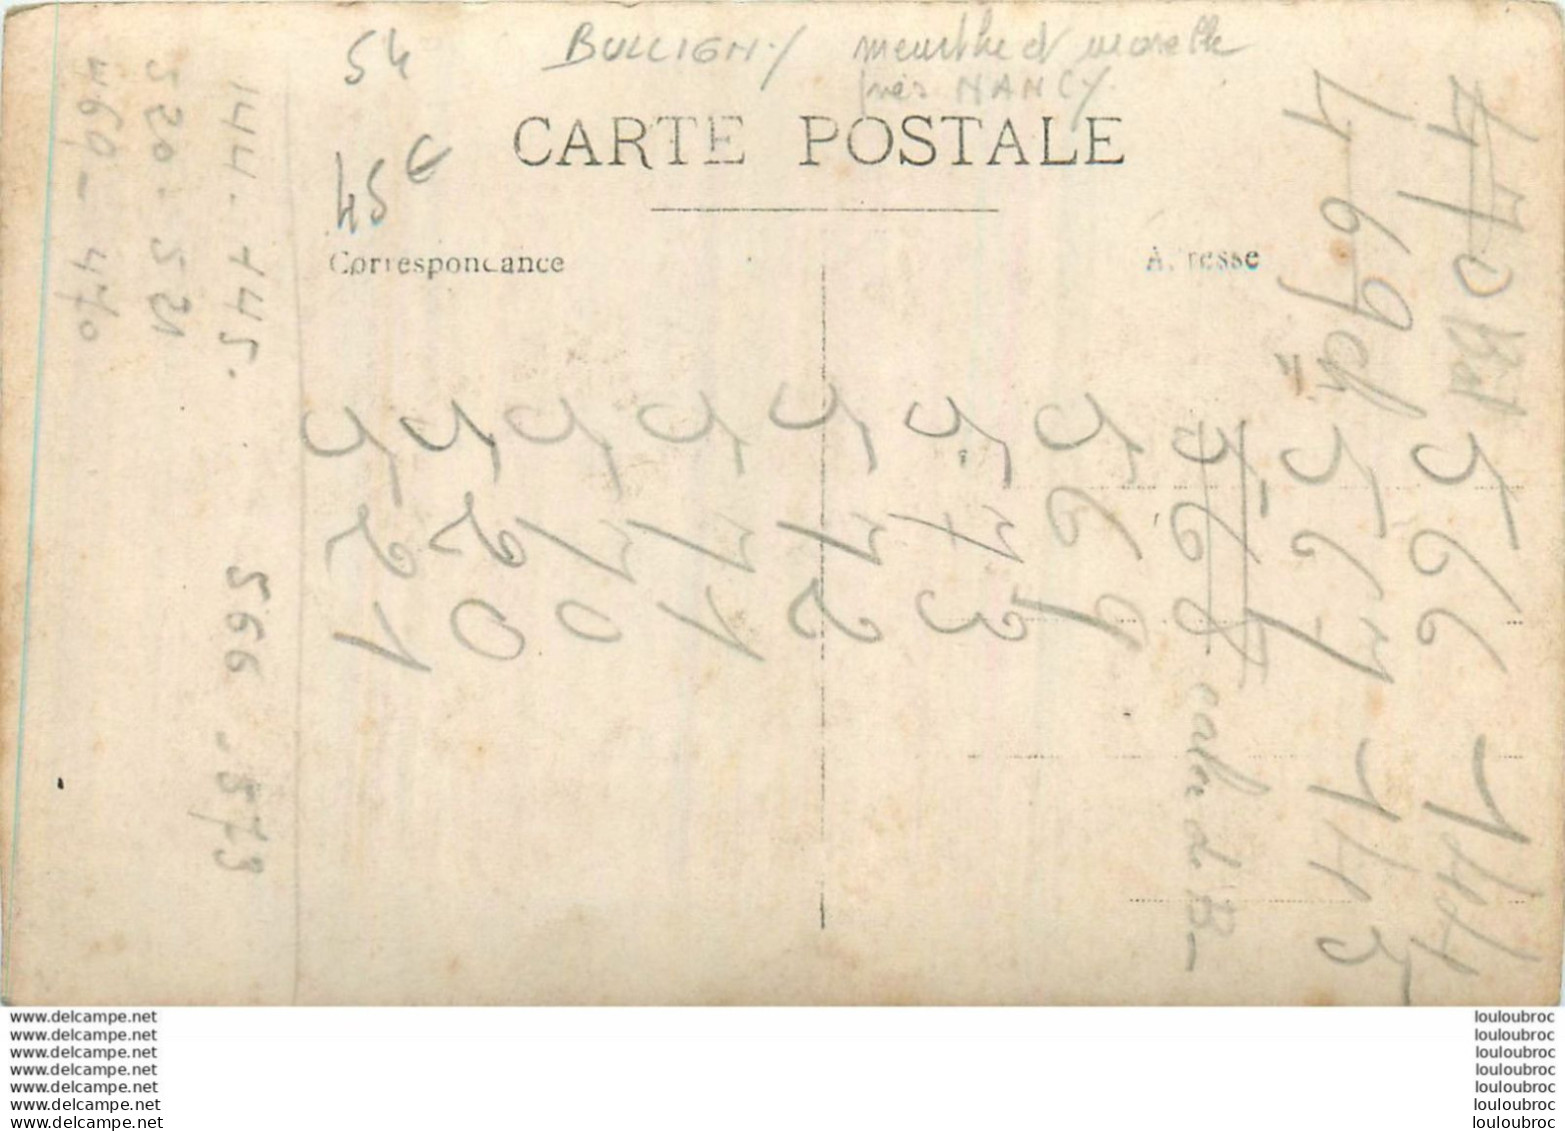 54
BULLIGNY meurthe et moselle
près NANCY
45 €
CARTE POSTALE
Correspondance
Adresse
144 - 145.
530 - 531
469 - 470
566 - 573
470
469
566 144
567 145
568
569
573
572
571
570
520
521
www.delcampe.net
www.delcampe.net
www.delcampe.net
www.delcampe.net
www.delcampe.net
www.delcampe.net
www.delcampe.net
louloubroc
louloubroc
louloubroc
louloubroc
louloubroc
louloubroc
louloubroc